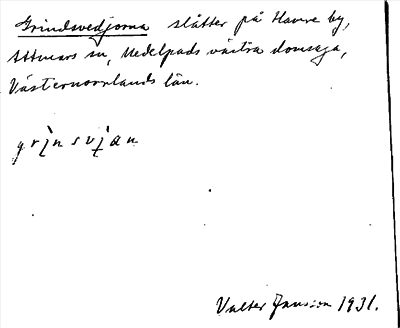 Grindsvedjorna slåtter på Havre by,
Attmars sn, Medelpads västra domsaga,
Västernorrlands län.
Valter Jansson 1931.